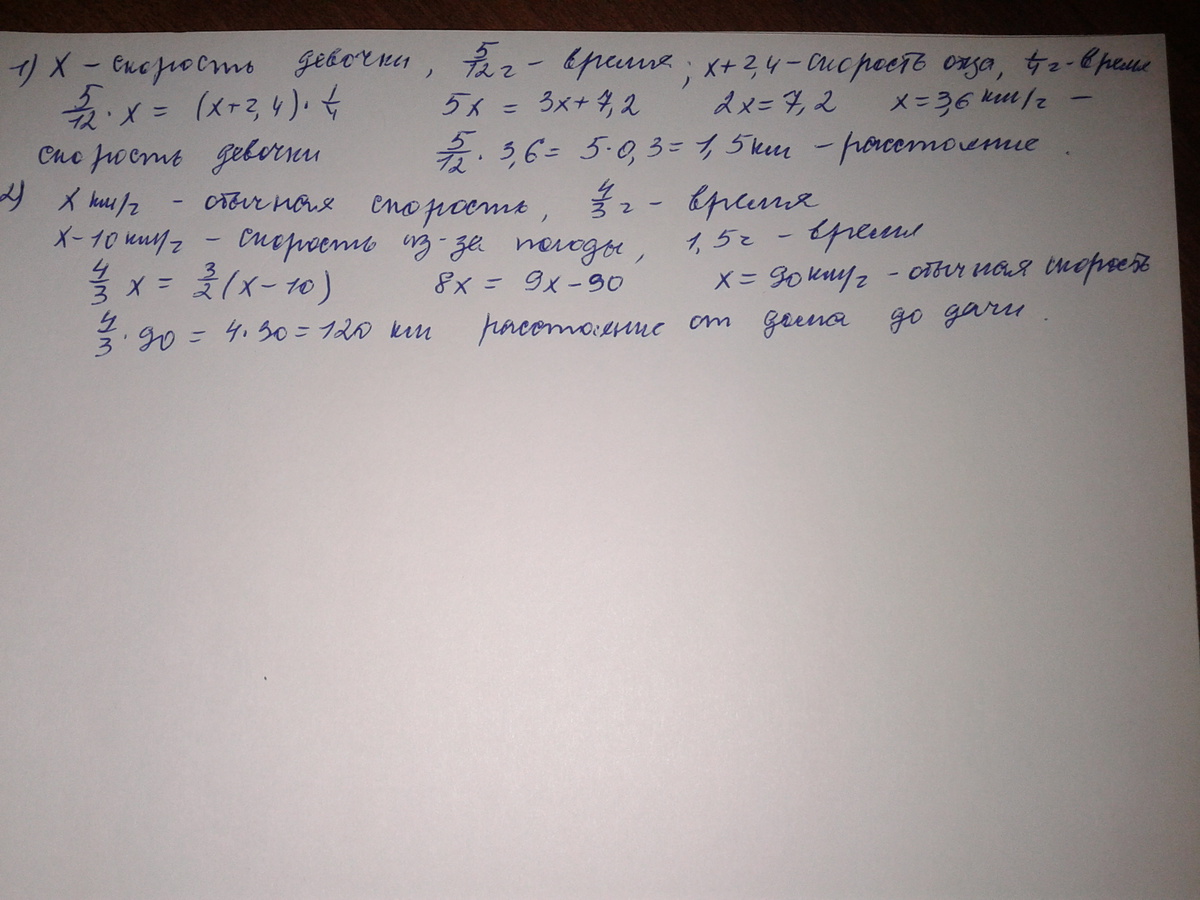 1) x – скорость девочки, 5/12 ч – время; x+2,4 – скорость отца, 1/4 ч – время
5/12 · x = (x+2,4) · 1/4 5x = 3x+7,2 2x=7,2 x=3,6 км/ч –
скорость девочки 5/12 · 3,6 = 5·0,3 = 1,5 км – расстояние.
2) x км/ч – обычная скорость, 4/3 ч – время
x–10 км/ч – скорость из-за погоды, 1,5 ч – время
4/3 x = 3/2 (x–10) 8x = 9x–90 x = 90 км/ч – обычная скорость
4/3 · 90 = 4·30 = 120 км расстояние от дома до дачи.